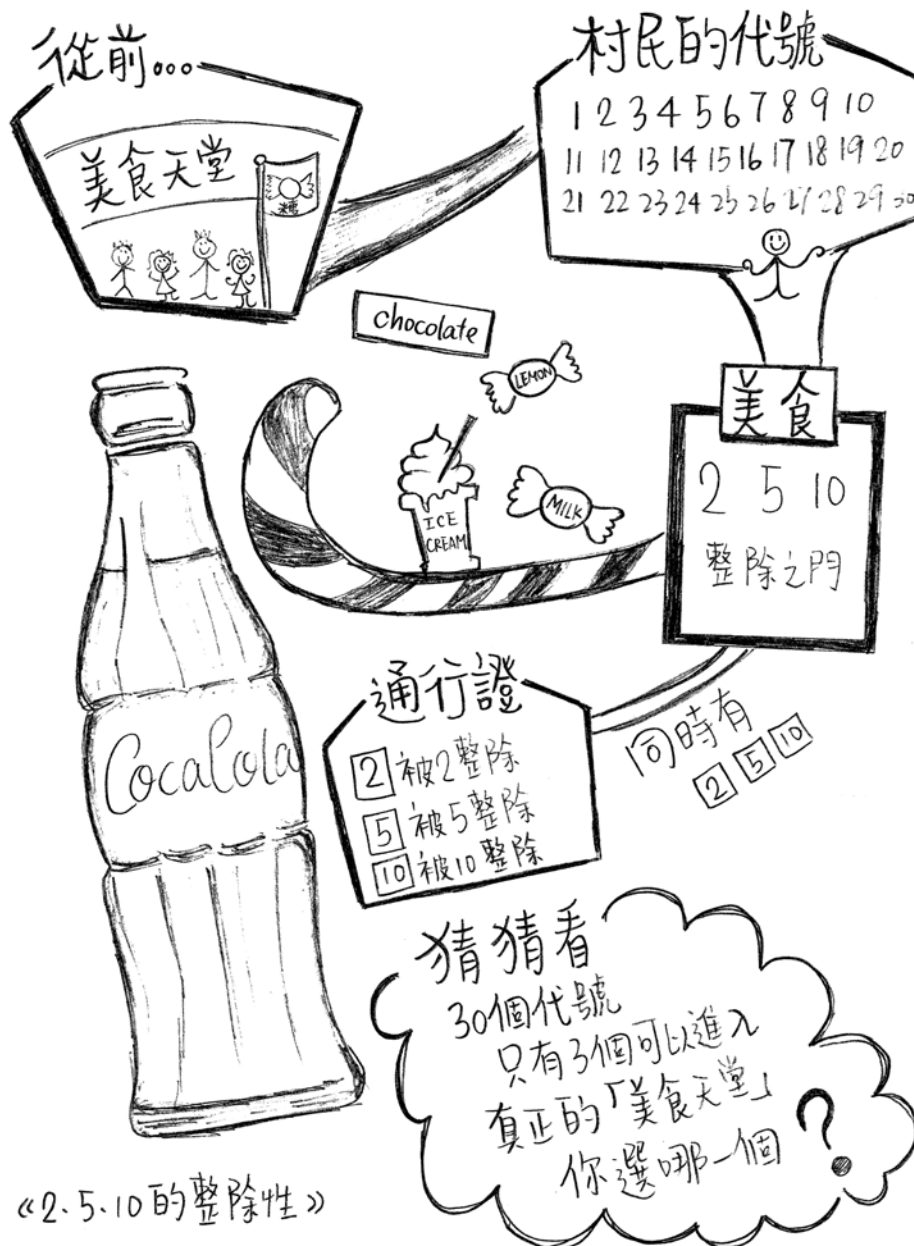 從前...
美食天堂
糖
村民的代號
1 2 3 4 5 6 7 8 9 10
11 12 13 14 15 16 17 18 19 20
21 22 23 24 25 26 27 28 29 30
chocolate
LEMON
ICE
CREAM
MILK
美食
2 5 10
整除之門
CocaCola
通行證
2 被2整除
5 被5整除
10 被10整除
同時有
2 5 10
猜猜看
30個代號
只有3個可以進入
真正的「美食天堂」
你選哪一個?
《2.5.10的整除性》